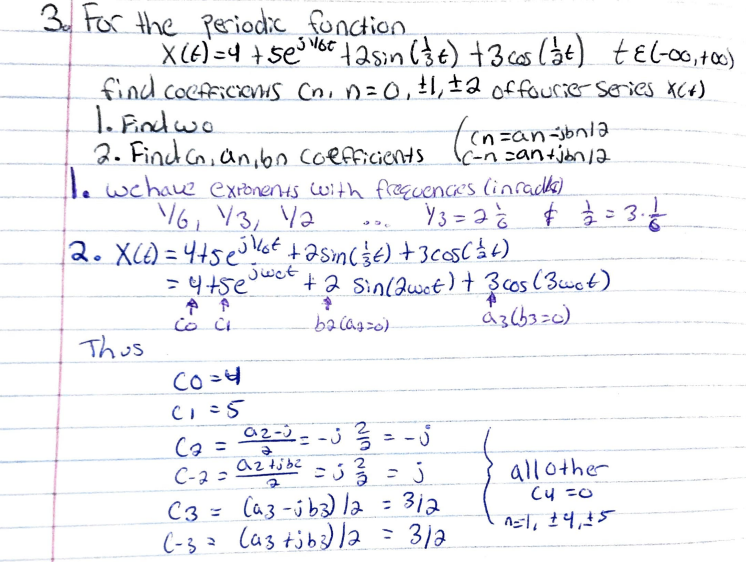 3. For the periodic function
x(t)=4 +5e^{j 1/6t} +2sin(1/3t) +3cos(1/2t) t ε(-∞,+∞)
find coefficients Cn, n=0, ±1, ±2 of fourier series x(t)
1. Find wo
(cn=an-jbn/2
2. Find Cn, an, bn coefficients
c-n=an+jbn/2
1. we have exponents with frequencies (in rad/s)
1/6, 1/3, 1/2 ... 1/3=2 1/6 & 1/2=3·1/6
2. X(t)=4+5e^{j1/6t}+2sin(1/3t)+3cos(1/2t)
=4+5e^{jwot}+2 sin(2wot)+3cos(3wot)
co c1 b2(a2=0) a3(b3=0)
Thus
C0=4
C1=5
C2 = a2-j/2 = -j 2/2 = -j
C-2 = a2+jb2/2 = j 2/2 = j
C3 = (a3-jb3)/2 = 3/2
C-3 = (a3+jb3)/2 = 3/2
all other
C4=0
n=1, ±4, ±5